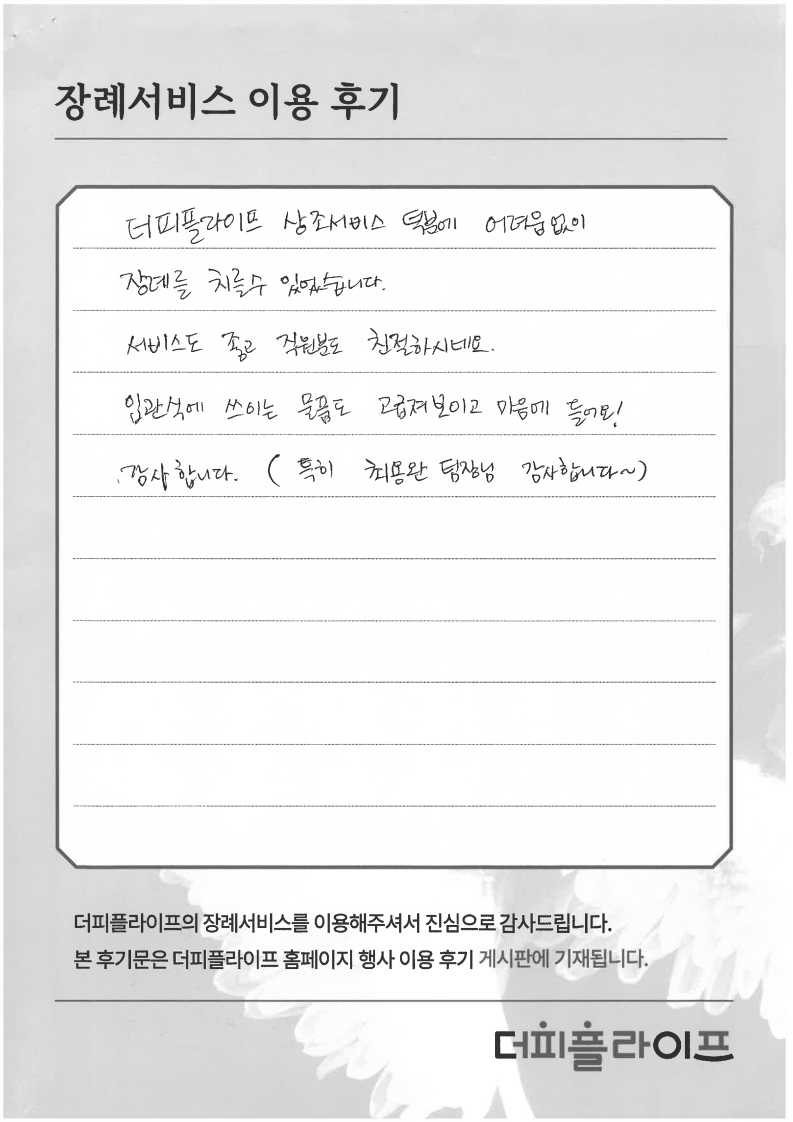 장례서비스 이용 후기
더피플라이프 상조서비스 덕분에 어려움없이
장례를 치를수 있었습니다.
서비스도 좋고 직원분도 친절하시네요.
입관식에 쓰이는 물품도 고급져보이고 마음에 들어요!
감사합니다. ( 특히 최용완 팀장님 감사합니다~)
더피플라이프의 장례서비스를 이용해주셔서 진심으로 감사드립니다.
본 후기문은 더피플라이프 홈페이지 행사 이용 후기 게시판에 기재됩니다.
더피플라이프